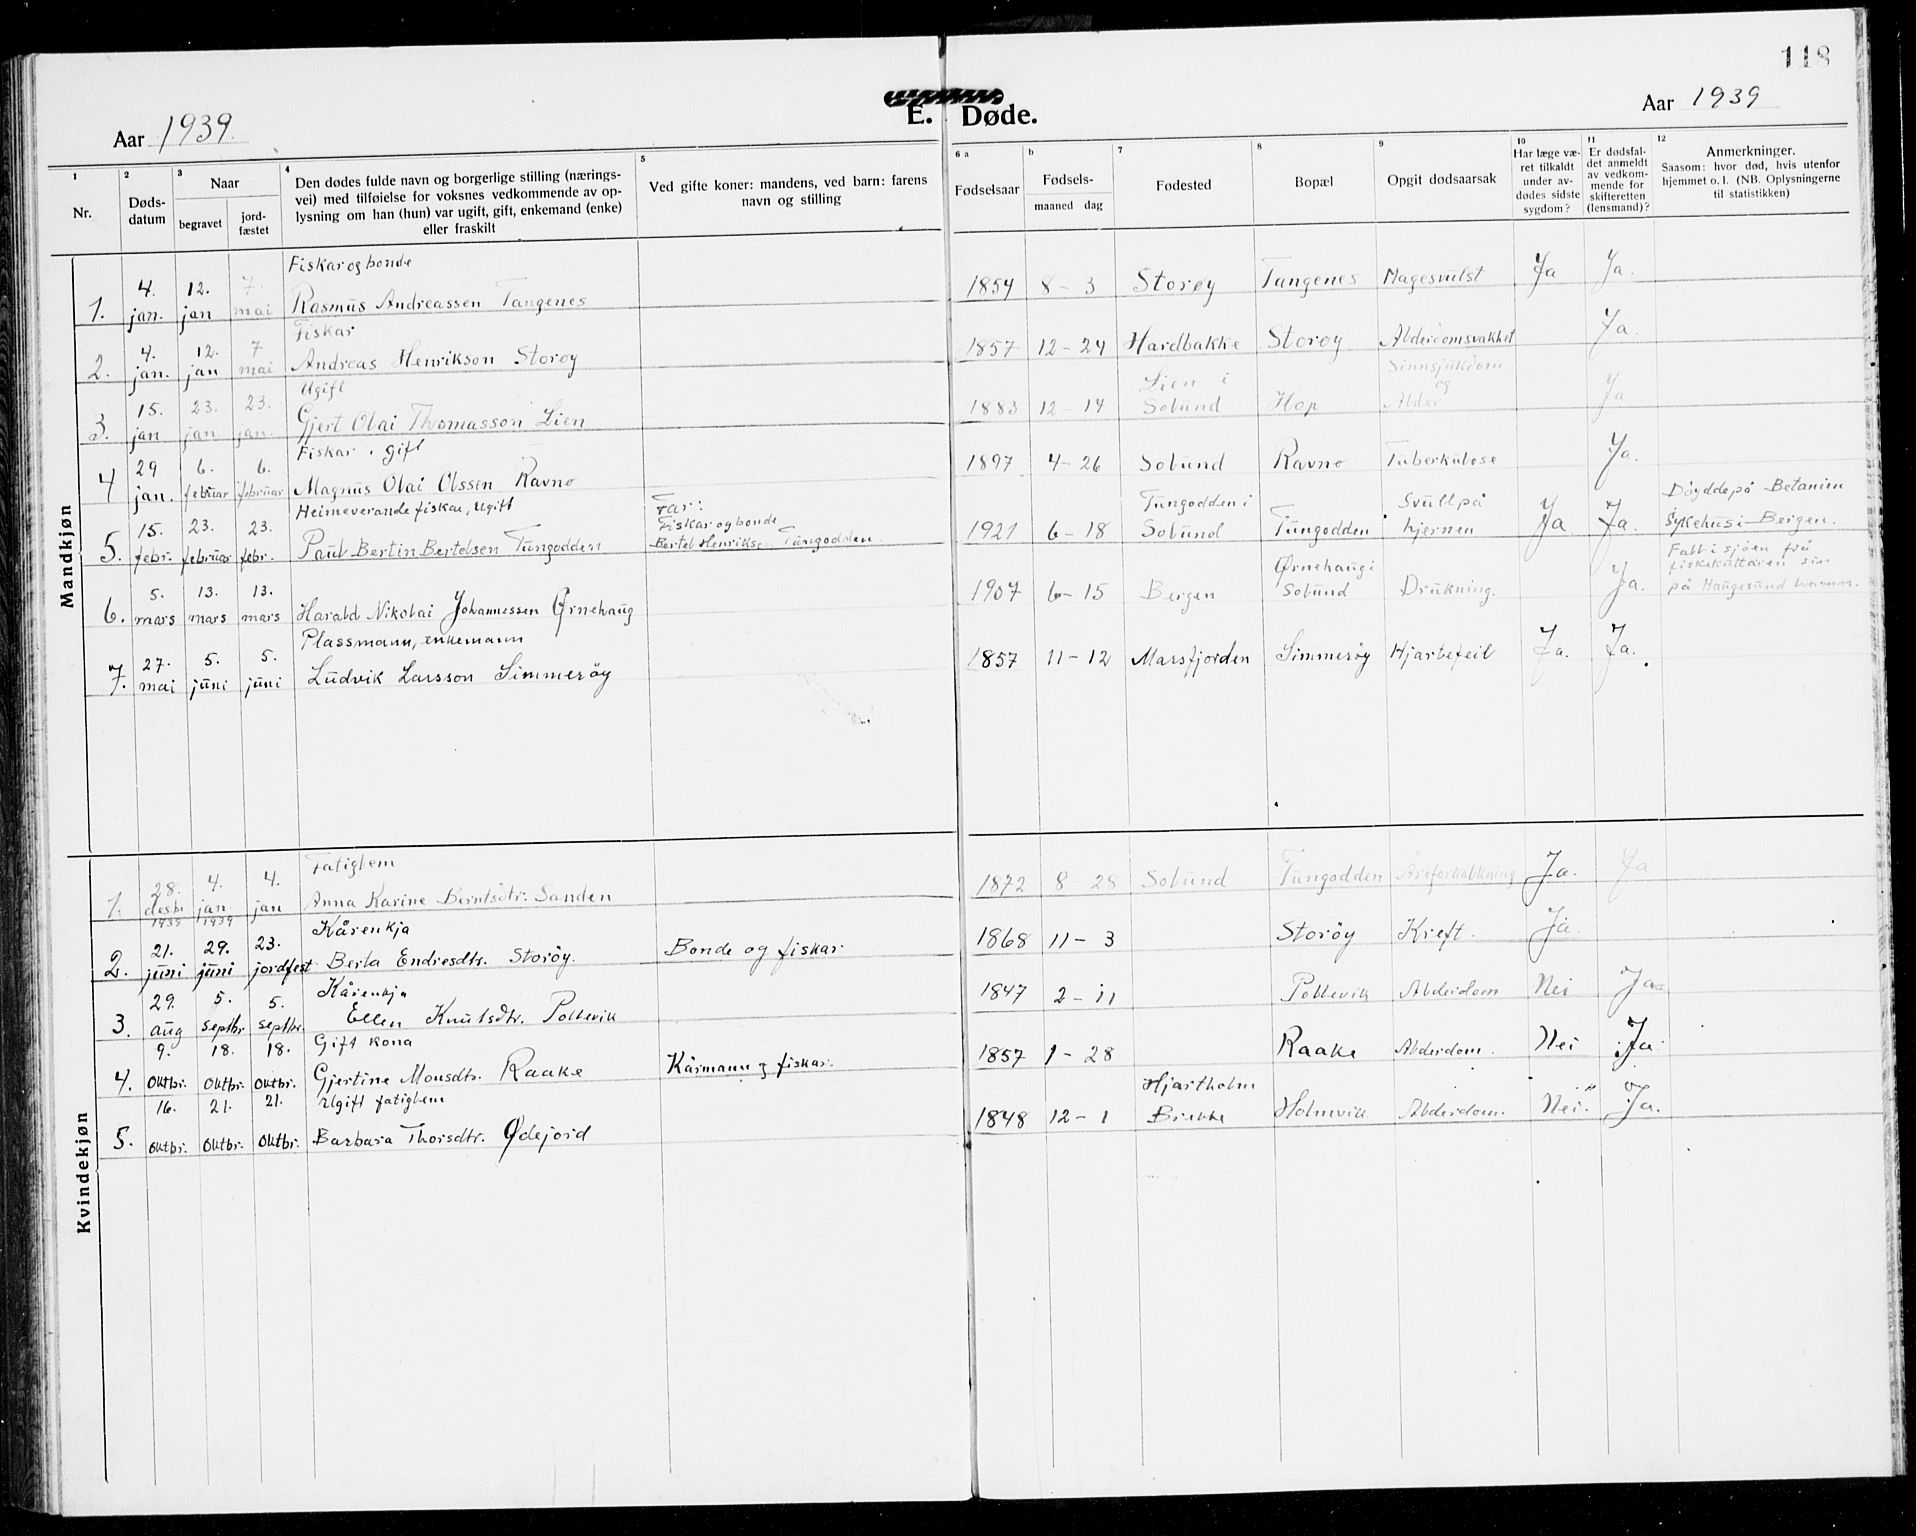 118
E. Døde.
Aar 1939
Aar 1939
1
Nr.
2
Døds-
datum
3
Naar
begravet
jord-
fæstet
4
Den dødes fulde navn og borgerlige stilling (nærings-
vei) med tilføielse for voksnes vedkommende av op-
lysning om han (hun) var ugift, gift, enkemand (enke)
eller fraskilt
5
Ved gifte koner: mandens, ved barn: farens
navn og stilling
6 a
Fødselsaar
b
Fødsels-
maaned dag
7
Fødested
8
Bopæl
9
Opgit dødsaarsak
10
Har læge væ-
ret tilkaldt
under av-
dødes sidste
sygdom?
11
Er dødsfal-
det anmeldt
av vedkom-
mende for
skifteretten
(lensmand)?
12
Anmerkninger.
Saasom: hvor død, hvis utenfor
hjemmet o. l. (NB. Oplysningerne
til statistikken)
Mandkjøn
1. 4. jan. 12. jan 7. mai Fiskar og bonde
Rasmus Andreassen Tangenes 1854 8 - 3 Storøy Tangenes Magesvulst Ja Ja.
2. 4. jan. 12. jan 7 mai Fiskar
Andreas Henrikson Storøy 1857 12 - 24 Hardbakke Storøy Alderdomsvakhet Ja.
3. 15. jan 23. jan 23. jan. Ugift
Gjert Olai Thomasson Lien 1883 12 - 14 Lien i Solund Hop Sinnsjukdom og Alder Ja
4 29 jan. 6. februar 6. februar Fiskar, gift
Magnus Olai Olssen Ravnø 1897 4 - 26 Solund Ravnø Tuberkulose Ja.
5. 15. febr. 23. februar 23. febr. Heimeverande fiskar, ugift
Paul Bertin Bertelsen Tungodden Far:
Fiskar og bonde
Bertel Henrikse Tungodden. 1921 6 - 18 Tungodden i Solund Tungodden Svull på hjernen Ja Ja. Døydde på Betanien
Sykehus i Bergen.
6. 5. mars 13. mars 13. mars Harald Nikolai Johannessen Ørnehaug 1907 6 - 15 Bergen Ørnehaug i Solund Drukning. Ja. Fall i sjøen frå
fiskekuttaren sin
på Haugesund hamn.
7. 27. mai 5. juni 5. juni Plassmann, enkemann
Ludvik Larsson Simmerøy 1857 11 - 12 Marsfjorden Simmerøy Hjartefeil Ja. Ja.
Kvindekjøn
1. 28. desbr 1938 4. jan. 1939 4. jan Fatiglem
Anna Karine Berntsdtr. Sanden 1872 8 - 28 Solund Tungodden Åreforkalkning Ja. Ja
2. 21. juni 29. juni 23. jordfest Kårenkja
Berta Endresdtr. Storøy. Bonde og fiskar 1868 11 - 3 Storøy Kreft. Ja.
3. 29. aug 5. septbr 5. septbr. Kårenkja
Ellen Knutsdtr. Pollevik 1847 2 - 11 Pollevik Alderdom Nei Ja
4. 9. Oktbr. 18. Oktbr. 18. Oktbr. Gift kona
Gjertine Monsdtr. Raake Kårmann og fiskar. 1857 1 - 28 Raake Alderdom. Nei Ja.
5. 16. Oktbr. 21. Oktbr. 21. Oktbr. Ugift fatiglem
Barbara Thorsdtr. Ødejord 1848 12 - 1 Hjartholm Brekke Holmvik Alderdom. Nei. Ja.